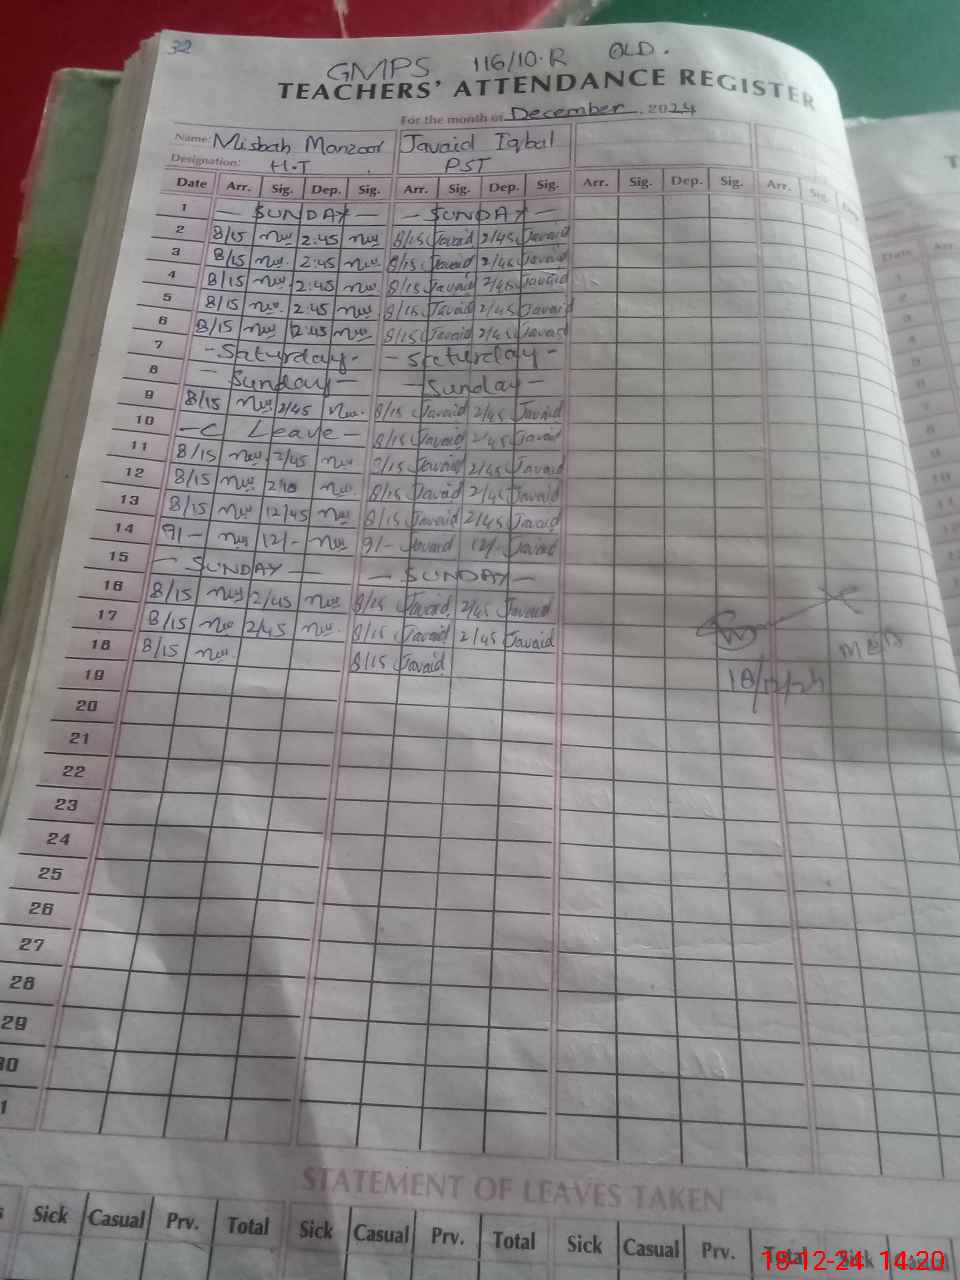 32
GMPS 116/10.R OLD.
TEACHERS' ATTENDANCE REGISTER
For the month of December 2024
Name: Misbah Manzoor Javaid Iqbal
Designation: H.T PST
Date Arr. Sig. Dep. Sig. Arr. Sig. Dep. Sig. Arr. Sig. Dep. Sig. Arr. Sig. Dep.
1 — SUNDAY — — SUNDAY —
2 8/15 2:45 8/15 Javaid 2/45 Javaid
3 8/15 2:45 8/15 Javaid 2/45 Javaid
4 8/15 2:45 8/15 Javaid 2/45 Javaid
5 8/15 2:45 8/15 Javaid 2/45 Javaid
6 8/15 2:45 8/15 Javaid 2/45 Javaid
7 - Saturday - - Saturday -
8 - Sunday - - Sunday -
9 8/15 2/45 8/15 Javaid 2/45 Javaid
10 - C Leave - 8/15 Javaid 2/45 Javaid
11 8/15 2/45 8/15 Javaid 2/45 Javaid
12 8/15 8/15 Javaid 2/45 Javaid
13 8/15 12/45 8/15 Javaid 2/45 Javaid
14 9/- 12/- 9/- Javaid 12/- Javaid
15 — SUNDAY — — SUNDAY —
16 8/15 2/45 8/15 Javaid 2/45 Javaid
17 8/15 2/45 8/15 Javaid 2/45 Javaid
18 8/15 8/15 Javaid
19
18/12/24
20
21
22
23
24
25
26
27
28
29
30
1
STATEMENT OF LEAVES TAKEN
Sick Casual Prv. Total Sick Casual Prv. Total Sick Casual Prv. Total Sick Casual
18-12-24 14:20